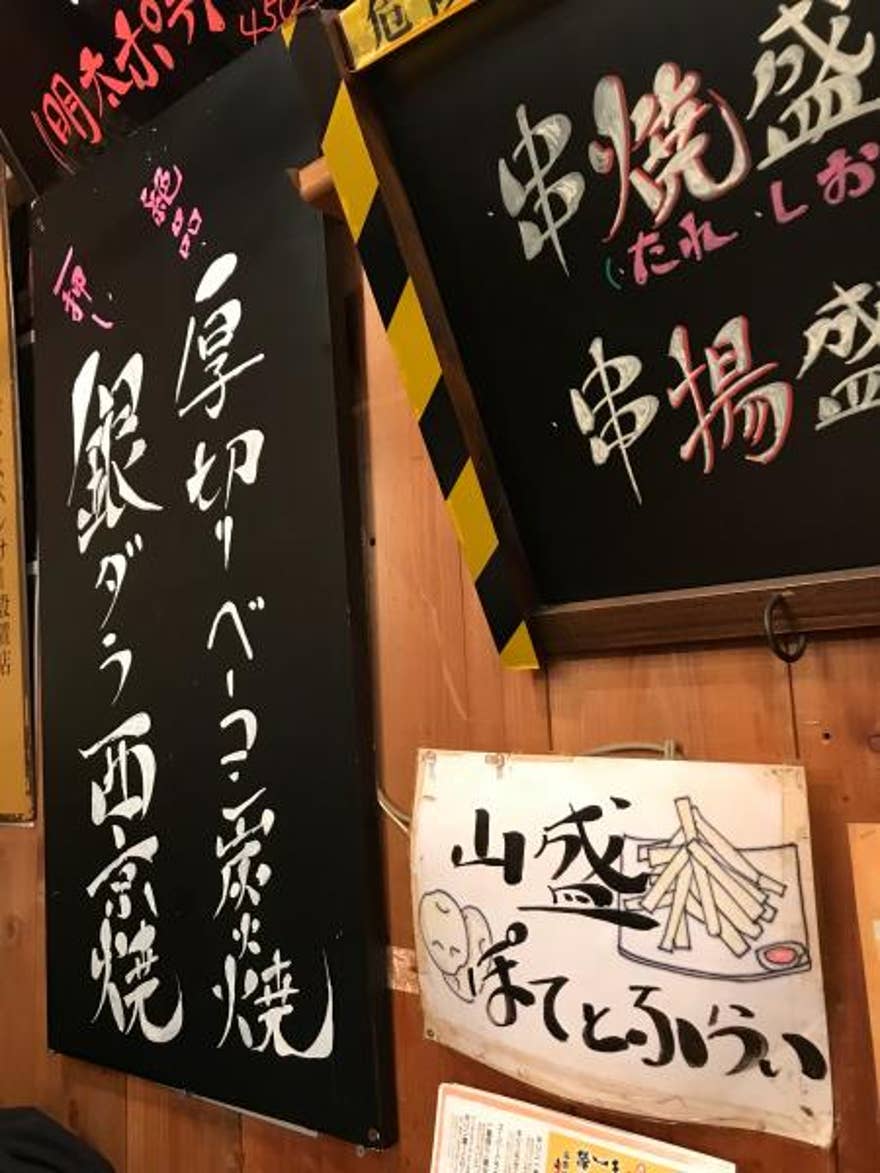 明太ポテ
危
串焼盛
(たれ・しお
串揚盛
絶品
厚切りベーコン炭火焼
一押し
銀ダラ西京焼
山盛
ぽてとふらい
設置店